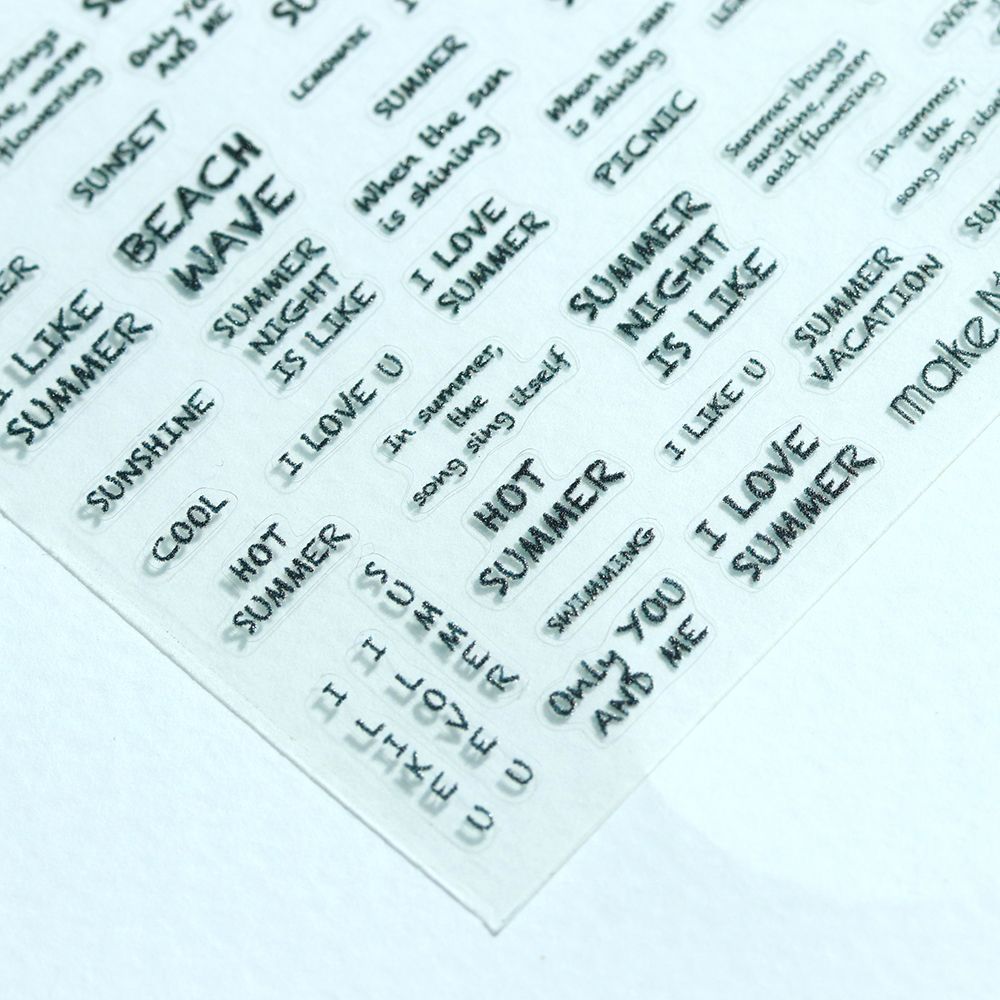 Only YOU
AND ME
LEMONADE
SUMMER
When the sun
is shining
When the sun
is shining
PICNIC
Summer brings
sunshine, warm
and flowering
In summer,
the
song sing
EVER
brings
warm
flowering
SUNSET
BEACH
WAVE
I LOVE
SUMMER
SUMMER
NIGHT
IS LIKE
SUMMER
NIGHT
IS LIKE
SUMMER
VACATION
make
I LIKE
SUMMER
SUNSHINE
I LOVE U
In summer,
the
song sing itself
I LIKE U
I LOVE
SUMMER
COOL
HOT
SUMMER
HOT
SUMMER
SWIMMING
Only YOU
AND ME
SUMMER
I LOVE U
I LIKE U